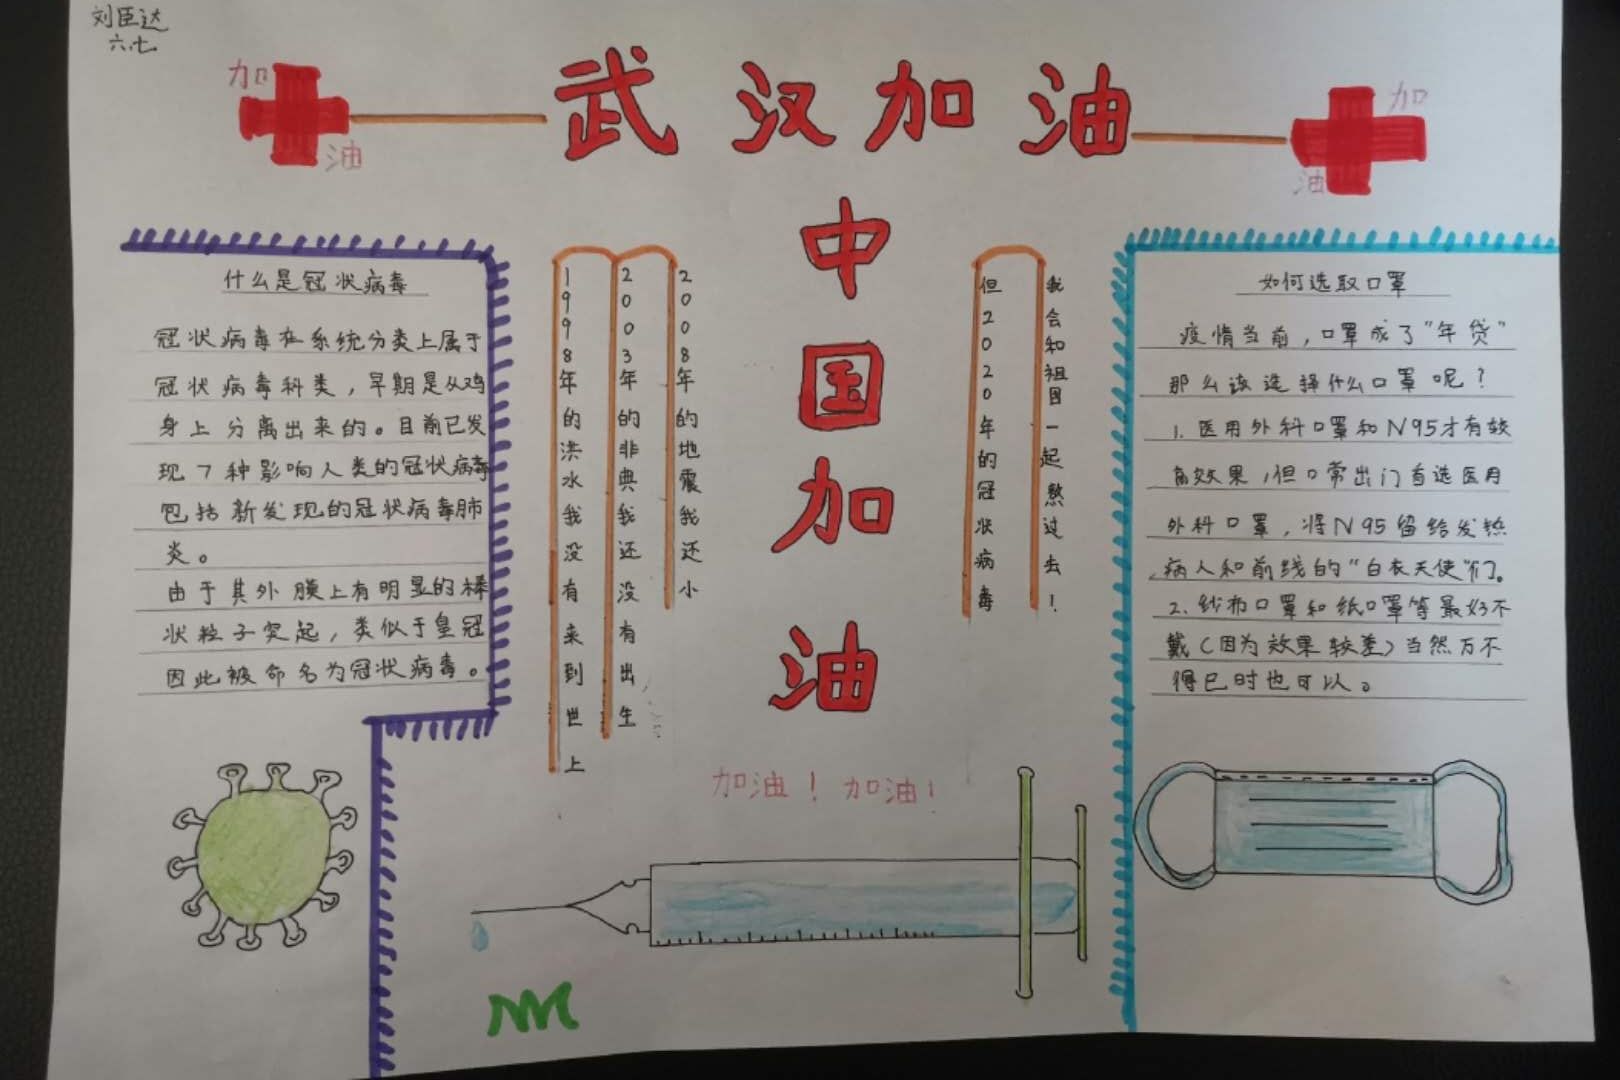 刘臣达
六.七
加
油
武汉加油
加
油
中国加油
什么是冠状病毒
冠状病毒在系统分类上属于
冠状病毒科类，早期是从鸡
身上分离出来的。目前已发
现7种影响人类的冠状病毒
包括新发现的冠状病毒肺
炎。
由于其外膜上有明显的棒
状粒子突起，类似于皇冠
因此被命名为冠状病毒。
1998年的洪水我没有来到世上
2003年的非典我还没有出生
2008年的地震我还小
但2020年的冠状病毒
我会和祖国一起熬过去！
加油！加油！
如何选取口罩
疫情当前，口罩成了“年贷”
那么该选择什么口罩呢？
1. 医用外科口罩和N95才有较
高效果，但日常出门首选医用
外科口罩，将N95留给发热
病人和前线的“白衣天使”们。
2. 纱布口罩和纸口罩等最好不
戴（因为效果较差）当然万不
得已时也可以。